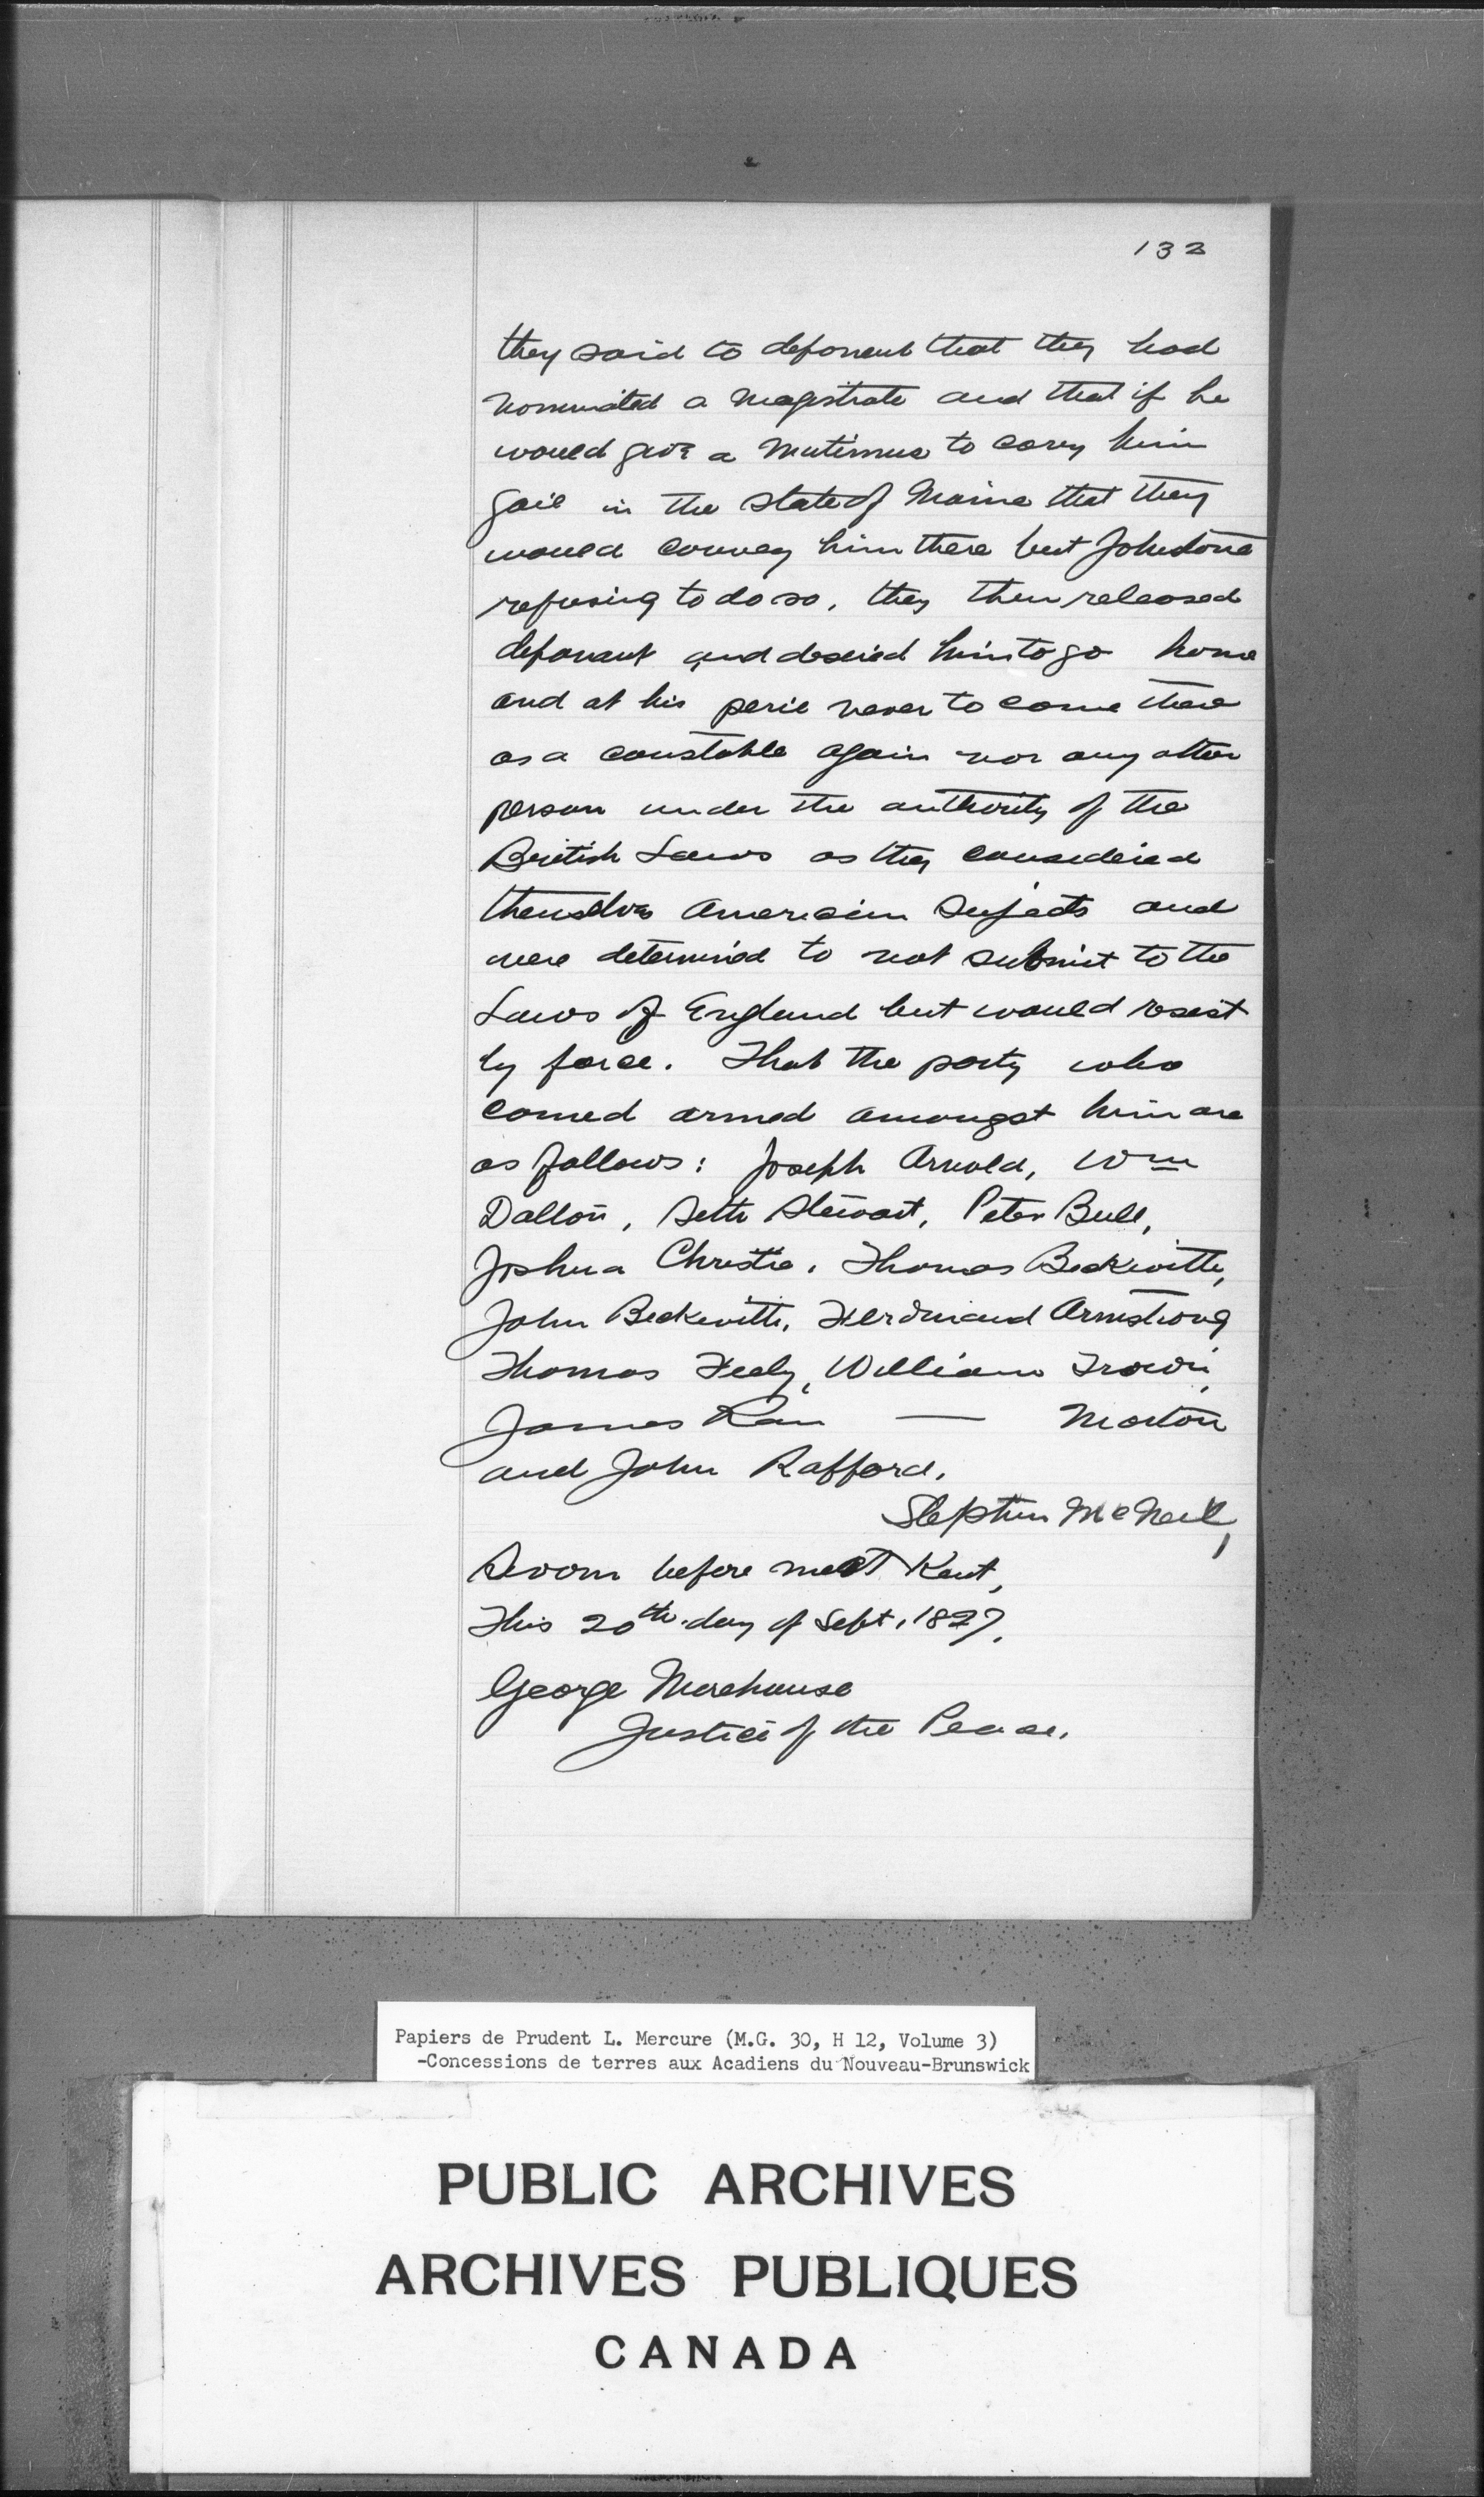 132
they said to deponent that they had
nominated a magistrate and that if he
would give a mutimus to carry him
gail in the state of Maine that they
would convey him there but Johnstone
refusing to do so, they then released
deponant and desired him to go home
and at his peril never to come there
as a constable again nor any other
person under the authority of the
British Laws as they considered
themselves American Sujects and
were determined to not submit to the
Laws of England but would resist
by force. That the party who
comed armed amongst him are
as follows: Joseph Arnold, Wm
Dalton, Seth Stewart, Peter Bull,
Joshua Christie, Thomas Beckwith,
John Beckwith, Ferdinand Armstrong
Thomas Feely, William
James — Morton
and John Rafford.
Stephen McNeil,
Sworn before me at Kent,
This 20th day of Sept, 1827.
George Morehouse
Justice of the Peace.
Papiers de Prudent L. Mercure (M.G. 30, H 12, Volume 3)
-Concessions de terres aux Acadiens du Nouveau-Brunswick
PUBLIC ARCHIVES
ARCHIVES PUBLIQUES
CANADA